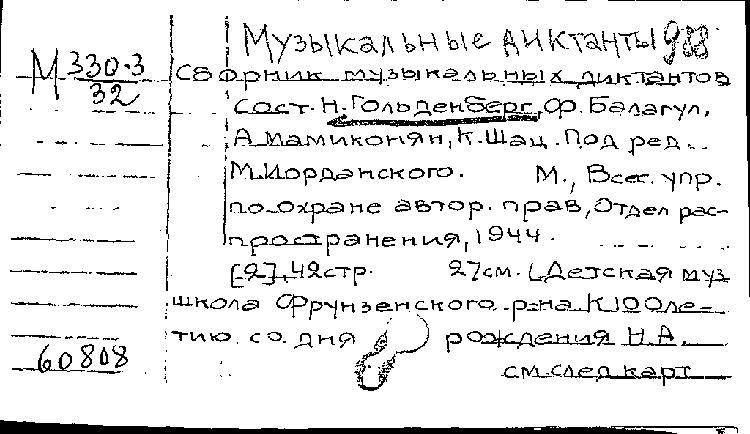 Музыкальные диктанты 988
М 330-3
32
Сборник музыкальных диктантов
Сост. Н. Гольденберг, Ф. Балагул,
А. Мамиконян, К. Шац. Под ред.
М. Иорданского. М., Всес. упр.
по охране автор. прав, Отдел рас-
пространения, 1944.
[2], 42 стр. 27 см. (Детская муз
школа Фрунзенского р-на К 100 ле-
тию со дня рождения Н.А.
60808
см. след карт